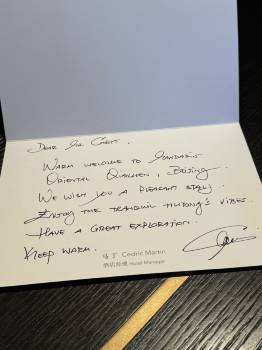 DEAR
WARM WELCOME TO MANDARIN
ORIENTAL QIANMEN, BEIJING.
WE WISH YOU A PLEASANT STAY!
ENJOY THE TRANQUIL HUTONG'S VIBES.
HAVE A GREAT EXPLORATION.
KEEP WARM.
马 丁 Cedric Martin
酒店经理 Hotel Manager